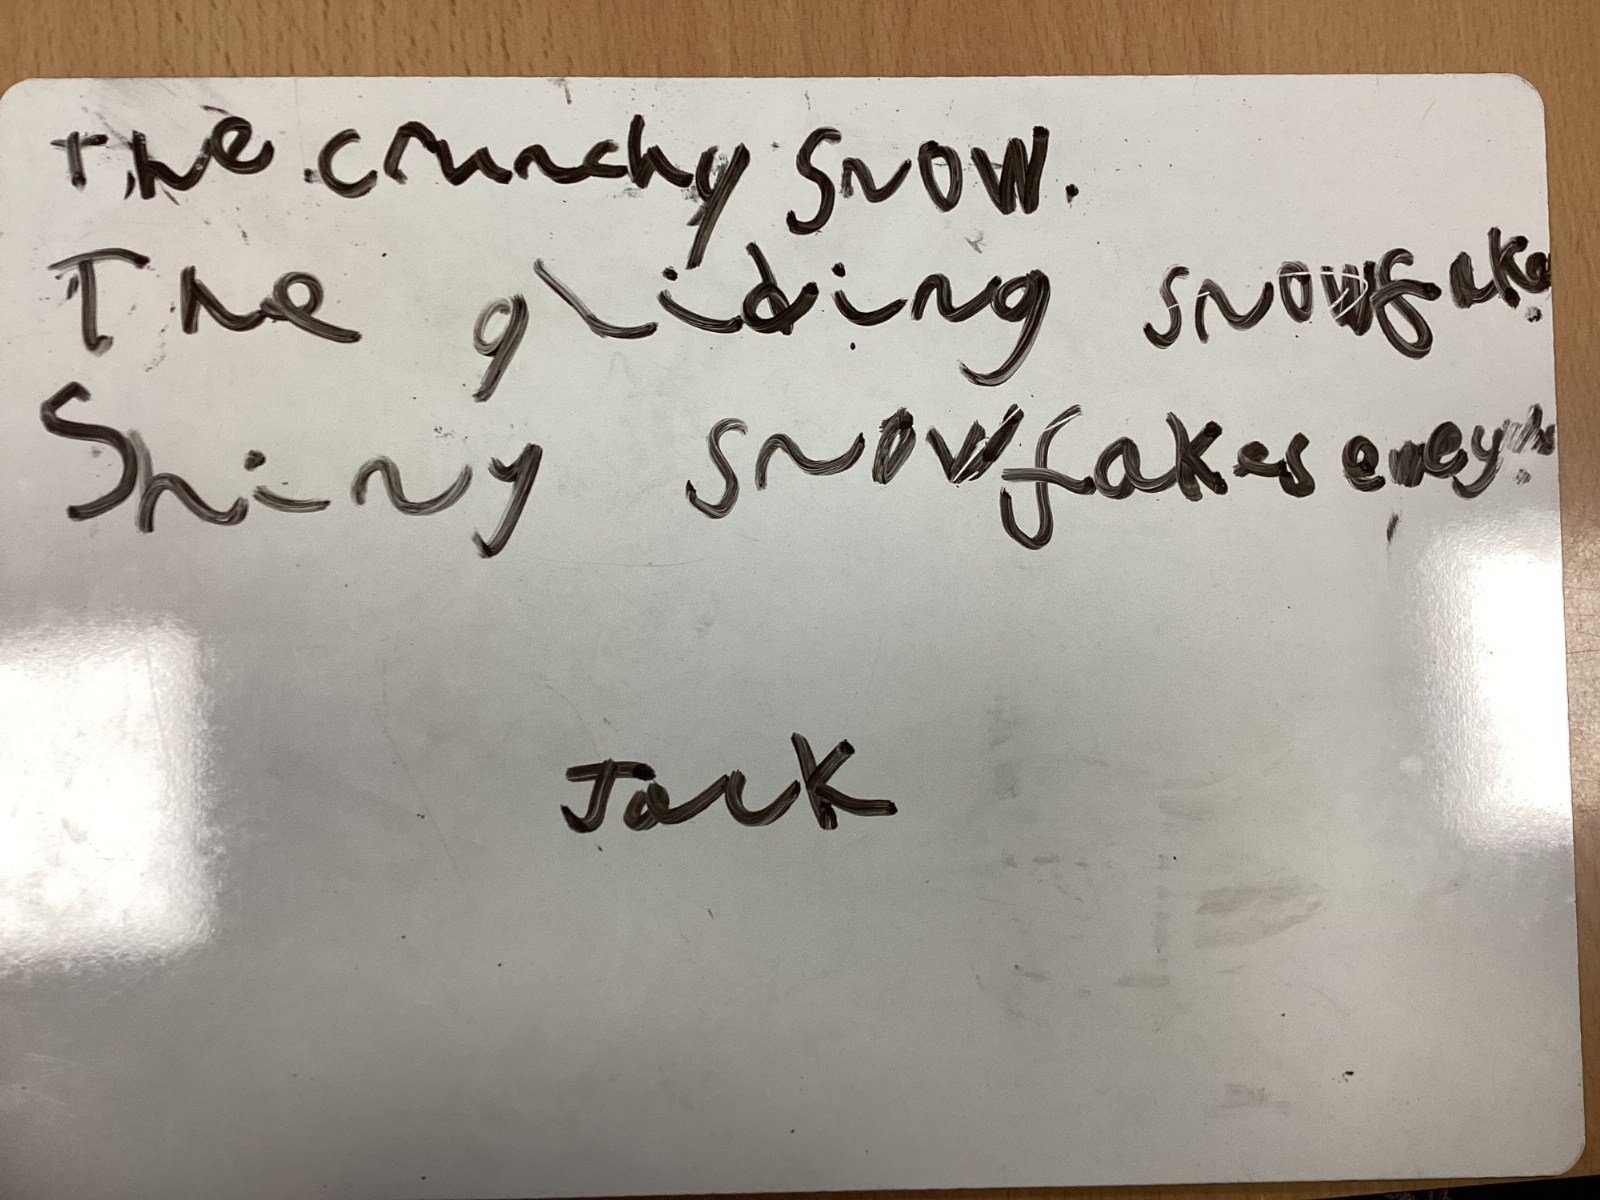 The crunchy snow.
The gliding snowfake
Shiny snowfakes
Jack